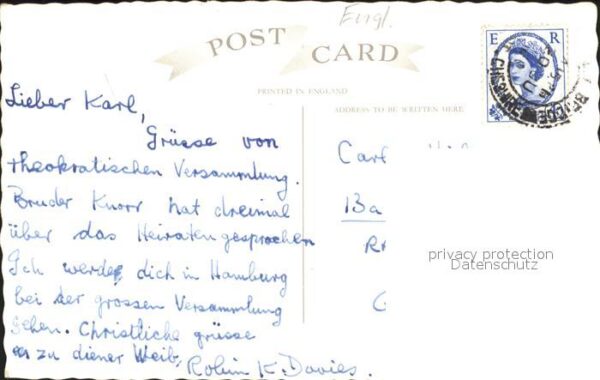 Engl.
POST CARD
E R
CHESHIRE
PRINTED IN ENGLAND
ADDRESS TO BE WRITTEN HERE
Lieber Karl,
Grüsse von
theokratischen Versammlung.
Bruder Knorr hat dreimal
über das Heiraten gesprochen
Ich werde dich in Hamburg
bei der grossen Versammlung
sehen. Christliche grüsse
zu diener Weib,
Robin K. Davies.
Carl
13a
privacy protection
Datenschutz